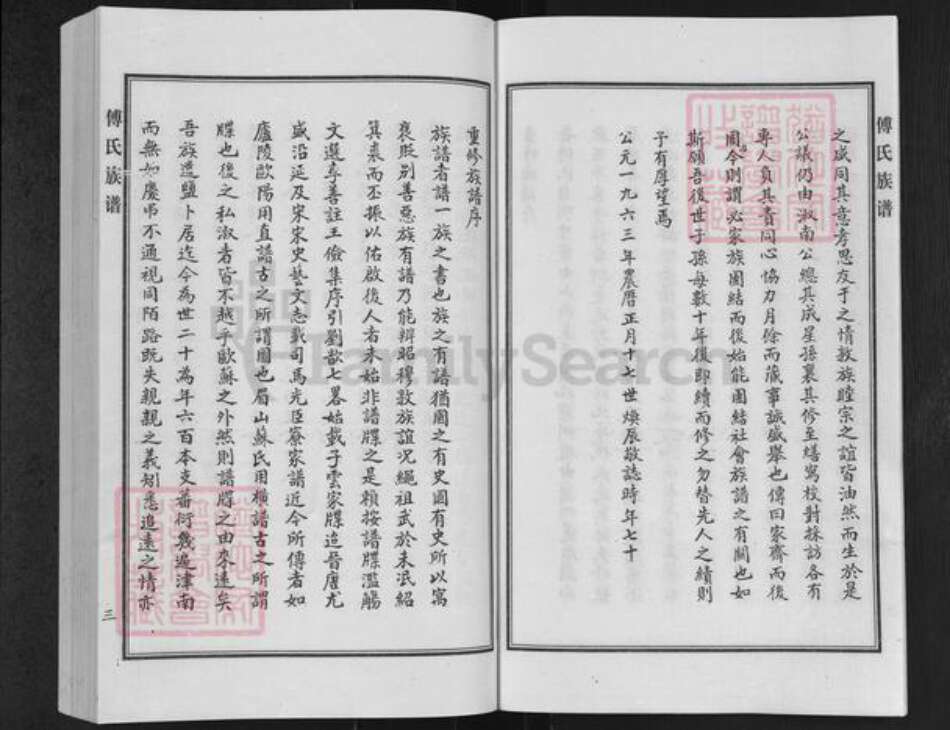 傅氏族谱
之盛同其意孝思友于之情敦族睦宗之誼皆油然而生於是
公議仍由淑南公總其成星孫襄其修至繕寫校對採訪各有
專人負其責同心協力月餘而蕆事誠盛舉也傳曰家齊而後
國今則謂必家族團結而後始能團結社會族譜之有關也如
斯願吾後世子孫每數十年後即續而修之勿替先人之績則
予有厚望焉
公元一九六三年農曆正月十七世煥辰敬誌時年七十
重修族譜序
族譜者譜一族之書也族之有譜猶國之有史國有史所以寓
褒貶別善惡族有譜乃能辨昭穆敦族誼况繩祖武於未泯紹
箕裘而丕振以佑啟後人者未始非譜牒之是賴按譜牒濫觴
文選李善註王儉集序引劉歆七畧姑載子雲家牒迨晉唐尤
盛沿延及宋宋史藝文志載司馬光臣寮家譜近今所傳者如
廬陵歐陽用直譜古之所謂圖也眉山蘇氏用橫譜古之所謂
牒也後之私淑者皆不越乎歐蘇之外然則譜牒之由來遠矣
吾族遷鹽卜居迄今為世二十為年六百本支蕃衍幾遍津南
而無如慶弔不通視同陌路既失親親之義矧悉追遠之情亦
傅氏族谱
三
FamilySearch